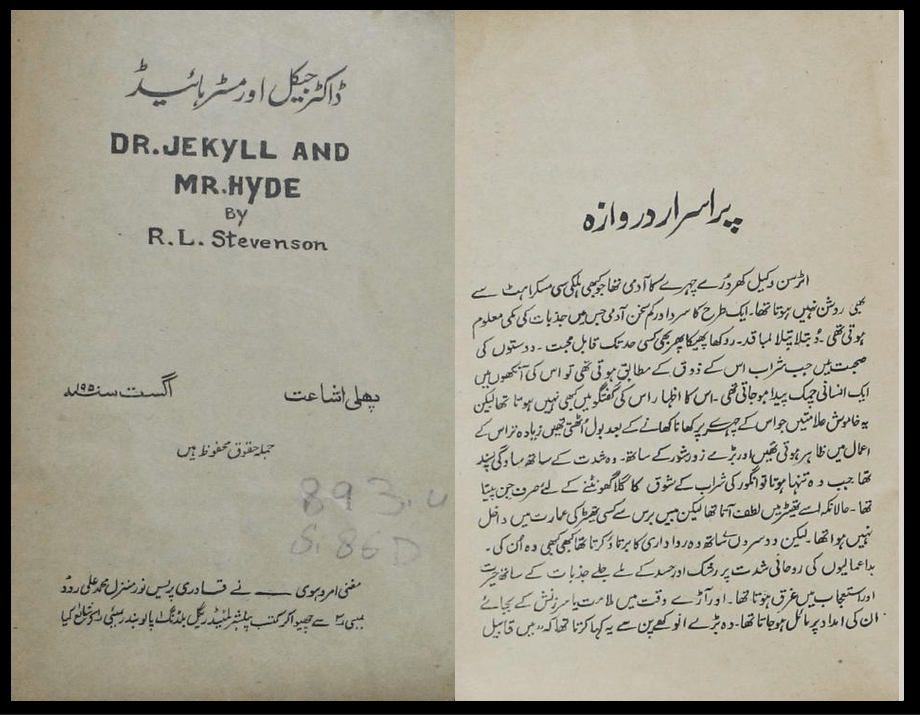 ڈاکٹر جیکل اور مسٹر ہائیڈ
DR.JEKYLL AND
MR.HYDE
BY
R.L. Stevenson
پھلی اشاعت
اگست سنہ ۱۹۵ء
جملہ حقوق محفوظ ہیں
893.4
S.86D
مغنی امروہوی نے قادری پریس نور منزل محمد علی روڈ
بمبئی ۳ سے چھپوا کر کتب پبلشرز لمیٹڈ ریگل بلڈنگ اپالو بندر بمبئی ۱ شائع کیا
پراسرار دروازہ
اٹرسن وکیل کھردرے چہرے کا آدمی تھا جو کبھی ہلکی سی مسکراہٹ سے
بھی روشن نہیں ہوتا تھا۔ ایک طرح کا سرد اور کم سخن آدمی جس میں جذبات کی کمی معلوم
ہوتی تھی۔ دُبلا پتلا لمبا قد۔ روکھا پھیکا پھر بھی کسی حد تک قابل محبت۔ دوستوں کی
صحبت میں جب شراب اس کے ذوق کے مطابق ہوتی تھی تو اس کی آنکھوں میں
ایک انسانی چمک پیدا ہو جاتی تھی۔ اس کا اظہار اس کی گفتگو میں کبھی نہیں ہوتا تھا لیکن
یہ خاموش علامتیں جو اس کے چہرے پر کھانا کھانے کے بعد بول اُٹھتی تھیں زیادہ تر اس کے
اعمال میں ظاہر ہوتی تھیں اور بڑے زور شور کے ساتھ۔ وہ شدت کے ساتھ سادگی پسند
تھا جب وہ تنہا ہوتا تو انگور کی شراب کے شوق کا گلا گھونٹنے کے لئے صرف جن پیتا
تھا۔ حالانکہ اسے تھیٹر میں لطف آتا تھا لیکن بیس برس سے کسی تھیٹر کی عمارت میں داخل
نہیں ہوا تھا۔ لیکن دوسروں کے ساتھ وہ رواداری کا برتاؤ کرتا تھا کبھی کبھی وہ اُن کی
بداعمالیوں کی روحانی شدت پر رشک اور حسد کے ملے جلے جذبات کے ساتھ حیرت
اور استعجاب میں غرق ہوتا تھا۔ اور آڑے وقت میں ملامت یا سرزنش کے بجائے
ان کی امداد پر مائل ہو جاتا تھا۔ وہ بڑے انوکھے پن سے یہ کہا کرتا تھا کہ "میں قابیل